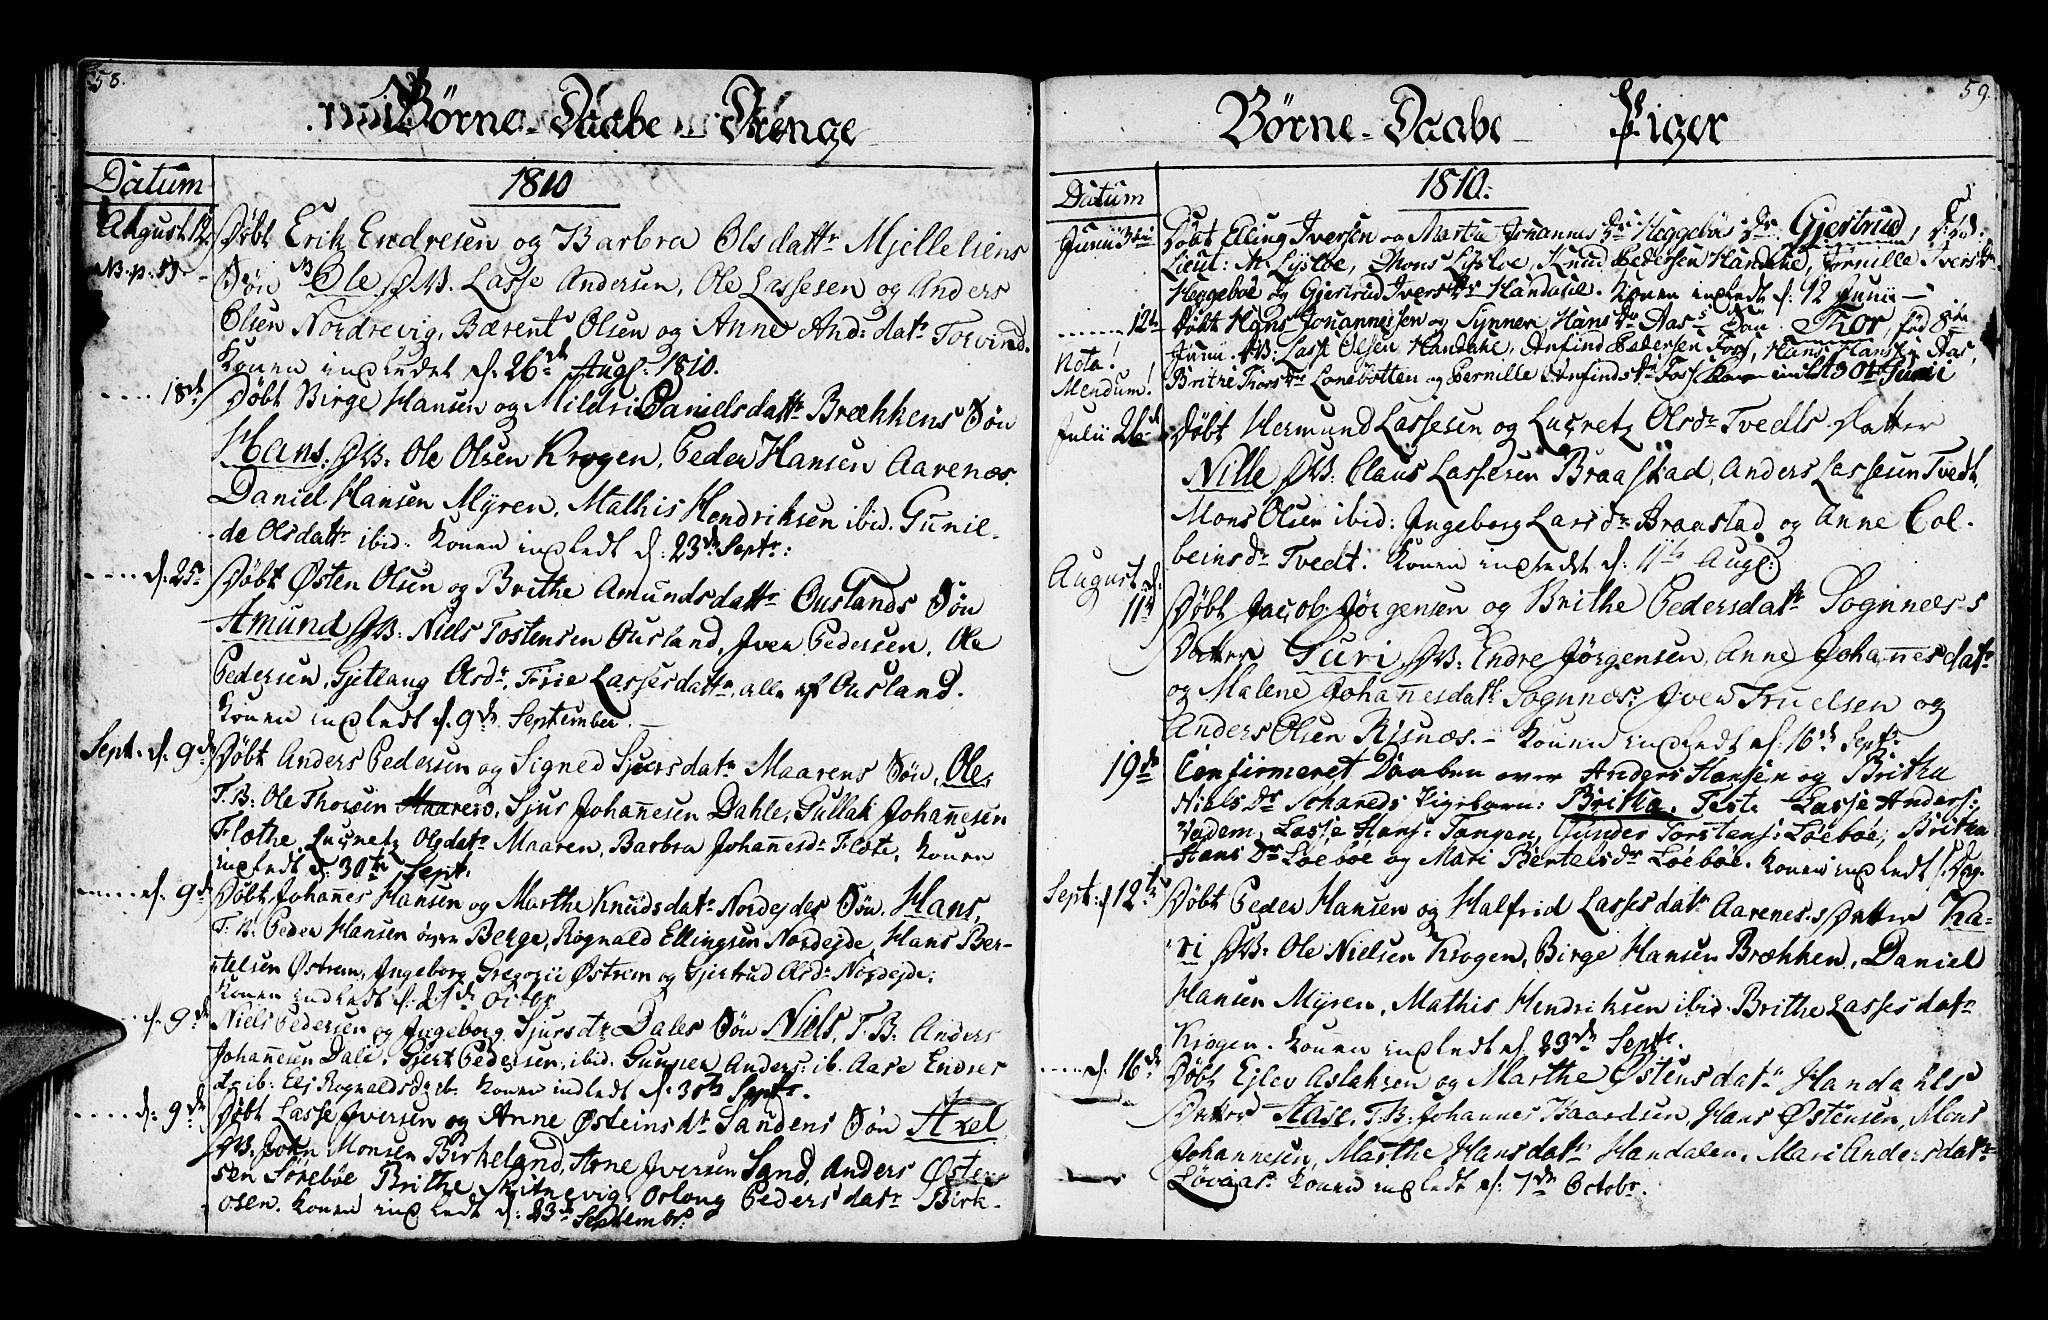 58.
Børne-Daabe Drenge
Datum
1810
August 12. Døbt Erik Endresen og Barbra Olsdattr Mjelleliens
NB. p. 59 Søn NB Ole. FB. Lasse Andersen, Ole Lassesen og Anders
Olsen Nordrevig, Bærent Olsen og Anne And: datr Torvind.
Konen indledet d. 26de Aug. 1810.
18de Døbt Birge Hansen og Mildri Danielsdattr Brækkens Søn
Hans. FB: Ole Olsen Krogen, Peder Hansen Aarenæs.
Daniel Hansen Myren, Mathis Hendriksen ibid. Gunil-
de Olsdattr ibid. Konen indledt d: 23de Septr:
d. 25. Døbt Østen Olsen og Brithe Amundsdattr Ouslands Søn
Amund FB: Niels Tostensen Ousland, Iver Pedersen, Ole
Pedersen, Gjetlaug Olsdr, Frie Lassesdattr, alle af Ousland.
Konen indledt d. 9de September.
Sept. d. 9de Døbt Anders Pedersen og Signed Sjursdatr Maarens Søn, Ole.
F.B: Ole Thorsen Maaren, Sjur Johañesen Dahle, Gullak Johañesen
Flothe, Lucretz Olsdatr Maaren, Barbra Johañesdr Flote, Konen
indledt d. 30te Sept.
d. 9de Døbt Johañes Hansen og Marthe Knudsdatr Nordejdes Søn, Hans,
F.B: Peder Hansen øvre Berge, Rognald Ellingsen Nordejde, Hans Ber-
telsen Østrem, Ingeborg Gregorii Østrem og Gjertrud Olsdr Nordejde.
Konen indledt d: 21de Octobr
d. 9de Niels Pedersen og Ingeborg Sjursdr Dales Søn Niels, F.B: Anders
Johañesen Dale, Gjert Pedersen, ibid. Anders: ib. Aase Endres
dr ib: Els Rognaldsdr ib. Konen indledt d: 30te Septr.
d: 9de Døbt Lasse Iversen og Anne Østeinsdr Sandens Søn Axel
FB. John Monsen Birkeland, Arne Iversen Sand, Anders Østen
sen Sørebøe Brithe Skitnevig, Osloug Pedersdatr Birk-
osen. Konen indledt d: 23de Septembr.
59.
Børne-Daabe Piger
Datum
1810.
Junii 3die Døbt Elling Iversen og Martha Johannis Dr: Heggebøe Dr Gjertrud,
Lieut: M. Lysloe, Mons Lysloe, Knud Pedersen Handahl, Pernille Iversdr
Heggeboe og Gjertrud Iversdr Handahl. Konen indledt d. 12 Junii
12te Døbt Hans Johannesen og Synneve Hans Dr Aas's Søn Thor, fød 8de
Nota! Junii. FB: Lasse Olsen Handahl, Anfind Pedersen Foss, Hans Hansen Aas,
Mendum! Brithe Thorsdr Lonebotten og Pernille Anfindsdr Foss Konen indl 30te Junii
Julii 26de Døbt Hermund Lassesen og Lucretz Olsdr Tvedts Datter
Nille FB: Claus Lassesen Braastad, Anders Lassesen Tvedt,
Mons Olsen ibid: Ingeborg Larsdr Braastad og Anne Col-
beinsdr Tvedt. Konen indledet d: 11te Aug:
August d.
11te Døbt Jacob Jørgensen og Brithe Pedersdatr Sognnæs's
Datter Guri, FB: Endre Jørgensen, Anne Johañesdatr
og Malene Johañesdatr Sognnes: Iver Truelsen og
Anders Olsen Risnæs. - Konen indledt d: 16de Septr.
19de Confirmeret Daaben over Anders Hansen og Britha
Niels Dr Schareds Pigebarn: Britha. Test: Lasse Anders:
Vadem, Lasse Hans: Tangen, Gunder Torstens: Løebøe, Britha
Hans Dr Løebøe og Mari Bertelsdr Løebøe. Konen indledt s. Dag.
Sept: d 12te Døbt Peder Hansen og Halfrid Lassesdatr Aarenes's Datter Ka-
ri FB: Ole Nielsen Krogen, Birge Hansen Brækken, Daniel
Hansen Myren, Mathis Hendriksen ibid. Brithe Lassesdatr
Krogen. Konen indledt d. 23de Septr.
d. 16de Døbt Ejlev Aslaksen og Marthe Østensdatr Handahls
Datter Aase. F.B: Johannes Baardsen, Hans Østensen, Mons
Johannesen, Marthe Hansdatr Handalen, Mari Andersdatr
Løvaas. Konen indledt d: 7de Octobr.